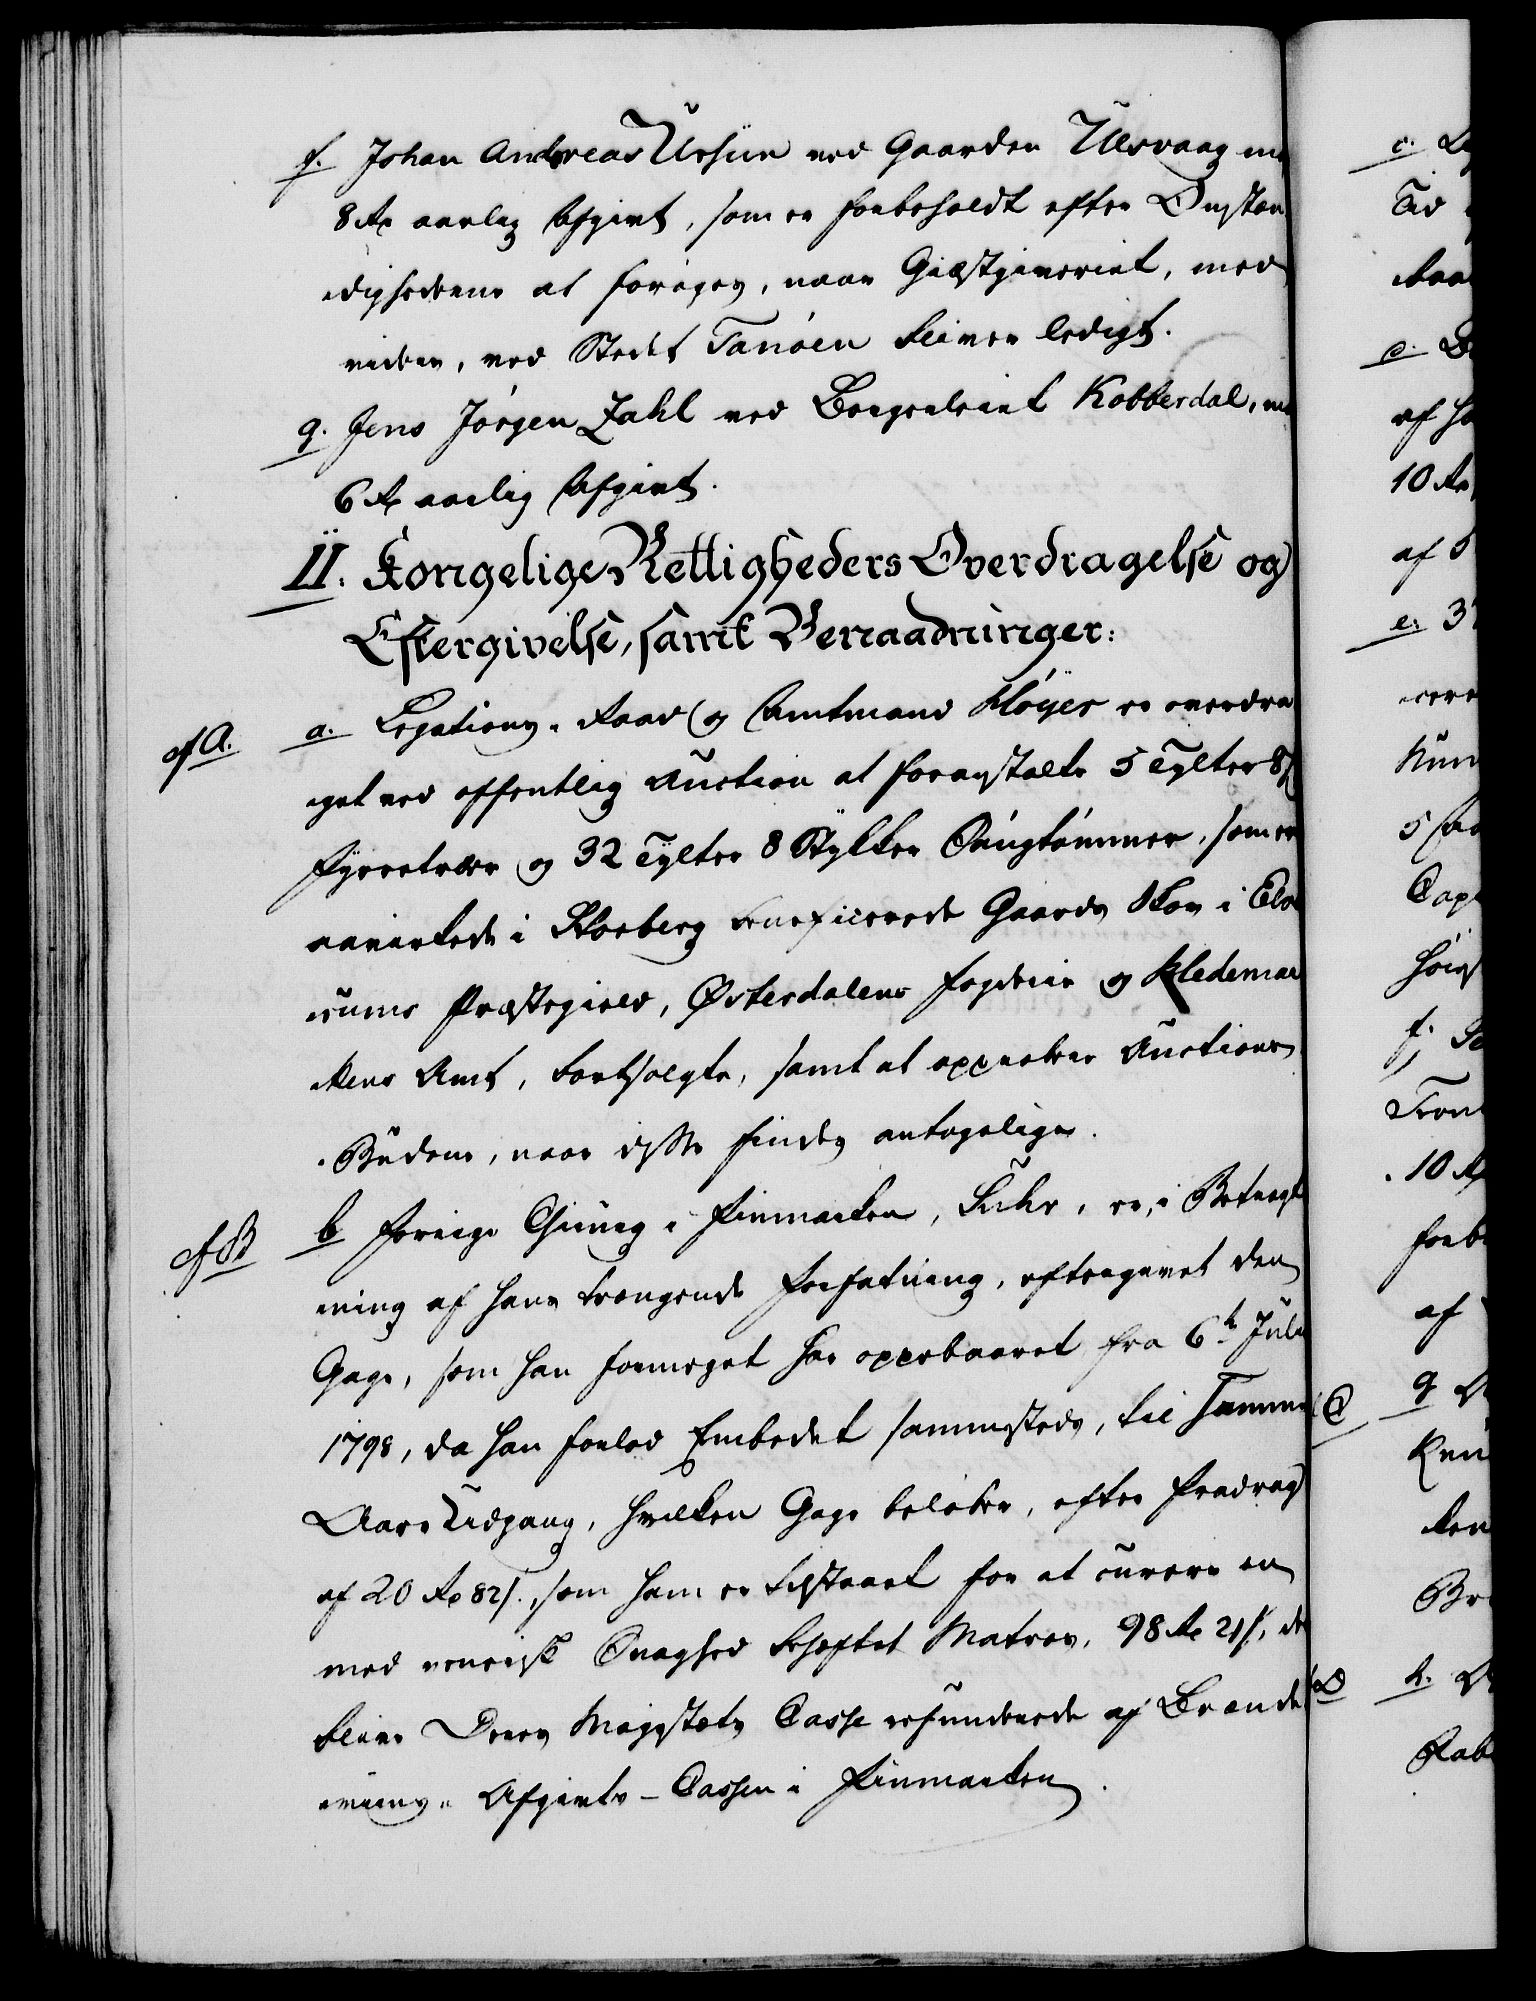 f. Johan Andreas Ursiin ved Gaarden Ulsvaag me
8 Rd aarlig Afgivt, som er forbeholdt efter Omstæn
dighederne at forøges, naar Giæstgiveriet, med
viidere, ved Stedet Tanøen bliver ledigt.
g. Jens Jørgen Zahl ved Borgerleiet Kobberdal, m
6 Rd aarlig Afgivt.
II. Kongelige Rettigheders Overdragelse og
Eftergivelse, samt Benaadninger:
cfA. a. Legations-Raad og Amtmand Höyer er overdra
get ved offentlig Auction at foranstalte 5 Tylter 8
Fyrretræer og 32 Tylter 8 Stykker Bingtømmer, som er
aavirkede i Storberg beneficerede Gaards Skov i Elve
rums Præstegield, Østerdalens Fogderie og Hedemar
kens Amt, bortsolgte, samt at approbere Auctions
Budene, naar disse findes antagelige.
cfB b forrige Chirurg i Finmarken, Suhr, er, i Betragt
ning af hans trængende Forfatning, eftergivet den
Gage, som han formeget har oppebaaret fra 6te Julii
1798, da han forlod Embedet sammesteds, til samme
Aars Udgang, hvilken Gage beløber, efter Fradrag
af 20 Rd 82 s., som ham er tilstaaet for at curere en
med venerisk Svaghed behæftet Matros, 98 Rd 21 s, de
blive Deres Majestæts Casse refunderede af Brænde
viins-Afgivts-Cassen i Finmarken.